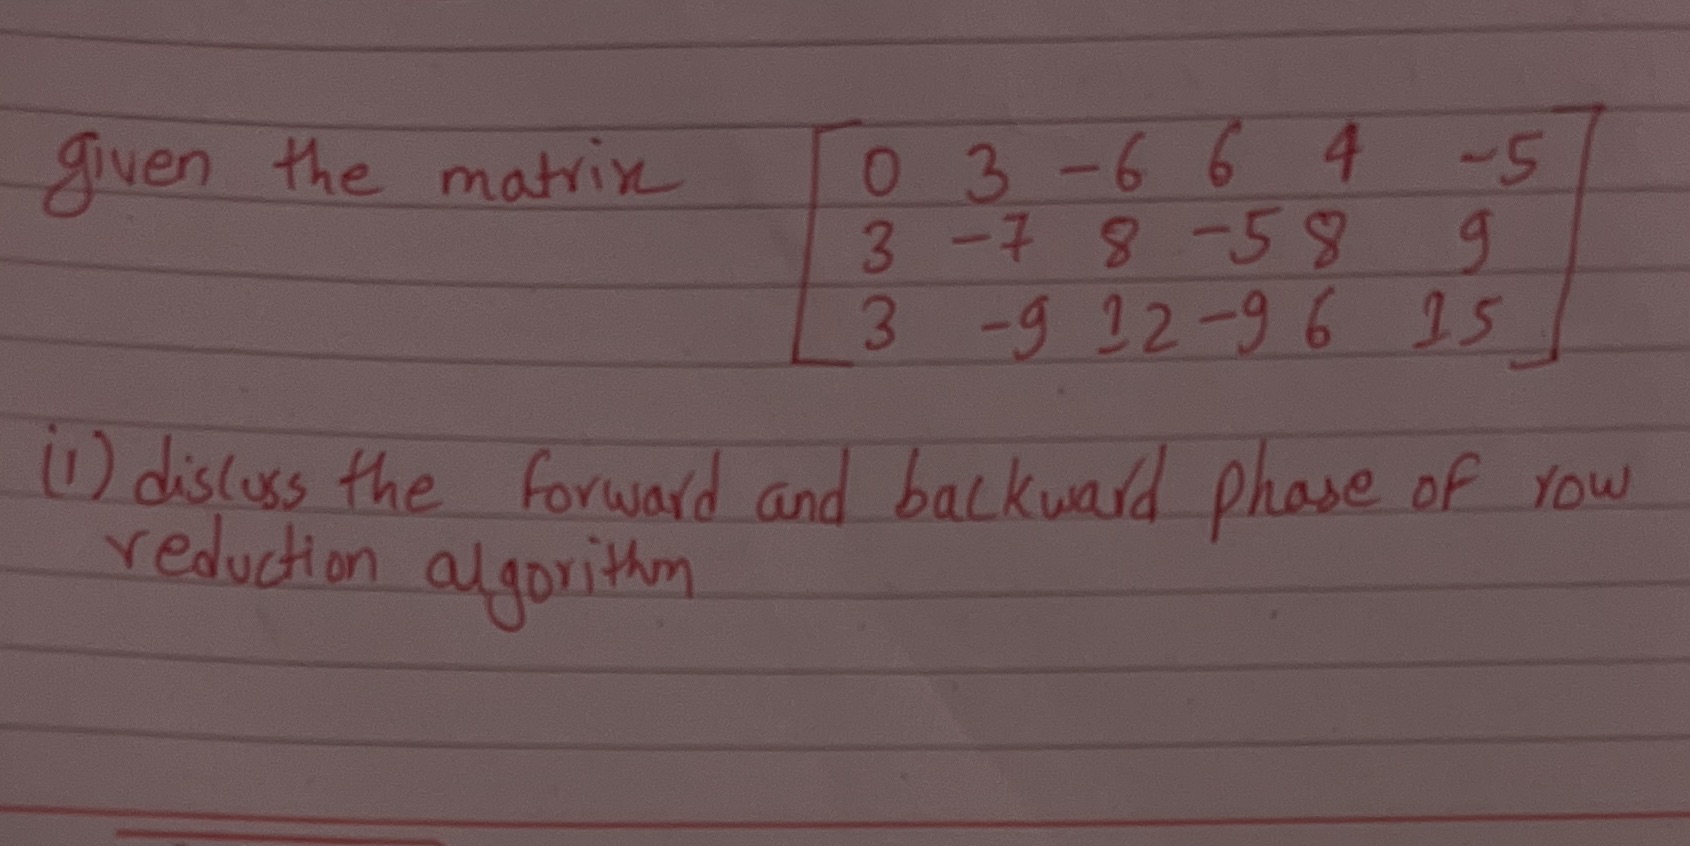 given the matrix [0 3 -6 6 4 -5
3 -7 8 -5 8 9
3 -9 12 -9 6 15]
(i) discuss the forward and backward phase of row
reduction algorithm